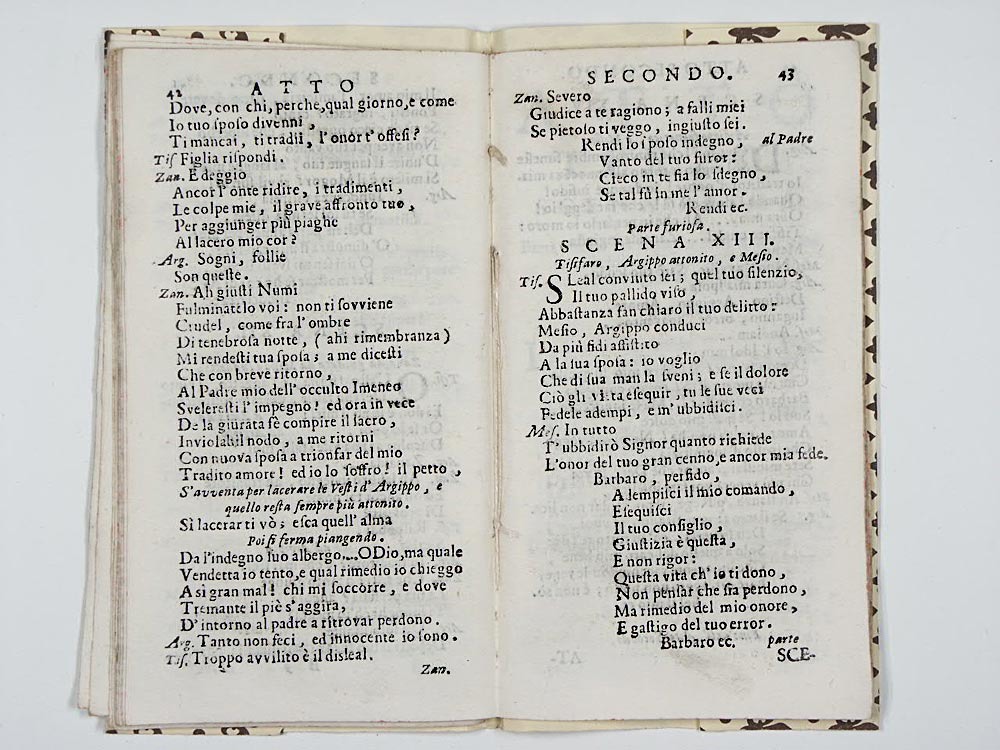 42 ATTO
Dove, con chi, perche, qual giorno, e come
Io tuo sposo divenni,
Ti mancai, ti tradii, l'onor t'offesi?
Tis Figlia rispondi.
Zan. E deggio
Ancor l'onte ridire, i tradimenti,
Le colpe mie, il grave affronto tuo,
Per aggiunger più piaghe
Al lacero mio cor?
Arg. Sogni, follie
Son queste.
Zan. Ah giusti Numi
Fulminatelo voi: non ti sovviene
Crudel, come fra l'ombre
Di tenebrosa notte, (ahi rimembranza)
Mi rendesti tua sposa; a me dicesti
Che con breve ritorno,
Al Padre mio dell'occulto Imeneo
Sveleresti l'impegno! ed ora in vece
De la giurata fè compire il sacro,
Inviolabil nodo, a me ritorni
Con nuova sposa a trionfar del mio
Tradito amore! ed io lo soffro! il petto,
S'avventa per lacerare le Vesti d'Argippo, e
quello resta sempre più attonito.
Sì lacerarti vò; esca quell'alma
Poi si ferma piangendo.
Da l'indegno suo albergo.... O Dio, ma quale
Vendetta io tento, e qual rimedio io chieggo
A sì gran mal! chi mi soccorre, e dove
Tremante il piè s'aggira,
D'intorno al padre a ritrovar perdono.
Arg. Tanto non feci, ed innocente io sono.
Tis. Troppo avvilito è il disleal.
Zan.
SECONDO. 43
Zan. Severo
Giudice a te ragiono; a falli miei
Se pietoso ti veggo, ingiusto sei.
Rendi lo sposo indegno, al Padre
Vanto del tuo furor:
Cieco in te sia lo sdegno,
Se tal fù in me l'amor.
Rendi ec.
Parte furiosa.
SCENA XIII.
Tisifaro, Argippo attonito, e Mesio.
Tis. SLeal convinto sei; quel tuo silenzio,
Il tuo pallido viso,
Abbastanza fan chiaro il tuo delitto:
Mesio, Argippo conduci
Da più fidi assistito
A la sua sposa: io voglio
Che di sua man la sveni; e se il dolore
Ciò gli vieta esequir, tu le sue veci
Fedele adempi, e m'ubbidisci.
Mes. In tutto
T'ubbidirò Signor quanto richiede
L'onor del tuo gran cenno, e ancor mia fede.
Barbaro, perfido,
Adempisci il mio comando,
Esequisci
Il tuo consiglio,
Giustizia è questa,
E non rigor:
Questa vita ch'io ti dono,
Non pensar che sia perdono,
Ma rimedio del mio onore,
E gastigo del tuo error.
Barbaro ec. parte
SCE-